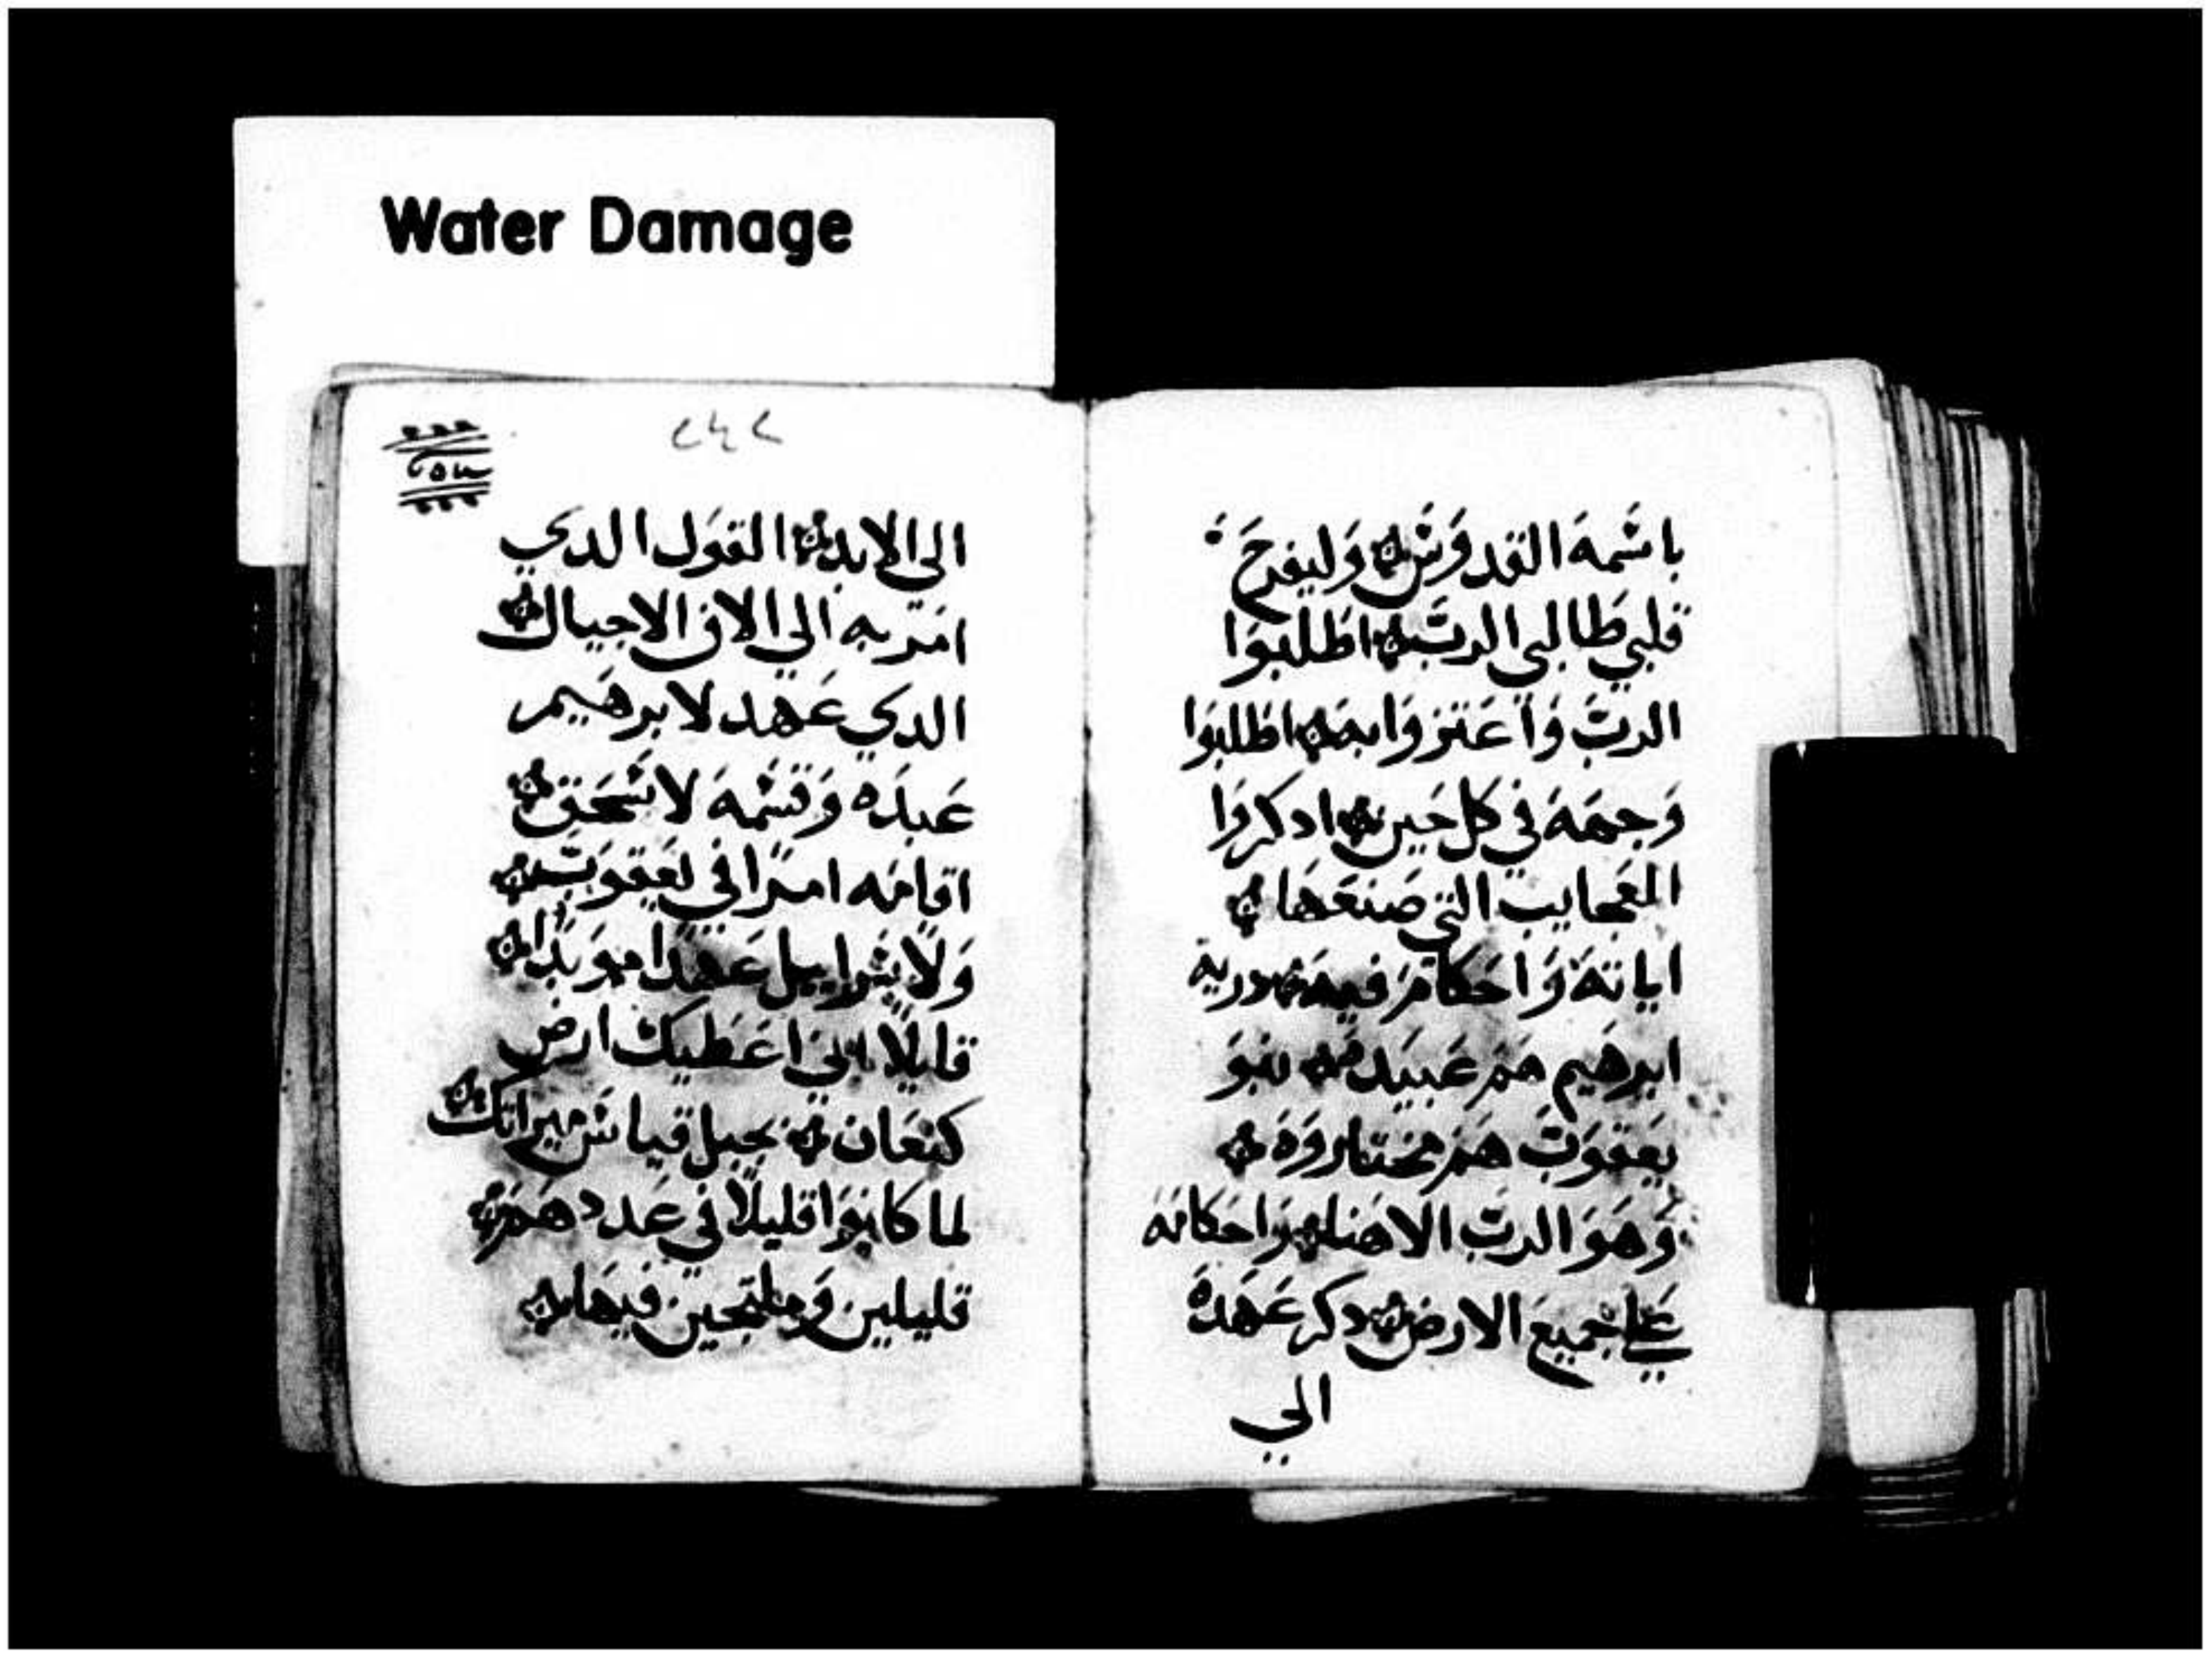 Water Damage
باسمه القدوس وليفرح
قلبي طالبي الرب اطلبوا
الرب واعتزوا به اطلبوا
وجهه في كل حين ادكروا
العجايب التي صنعها
اياته واحكام فيه درية
ابرهيم هم عبيده بنو
يعقوب هم مختاروه
وهو الرب الاهنا واحكامه
علي جميع الارض دكر عهده
الي
٢٤٢
الى الابد القول الدي
امر به الي الاف الاجيال
الدي عهد لابرهيم
عبده وقسمه لاسحق
اقامه امرا في يعقوب
ولاسراييل عهدا موبدا
قايلا اني اعطيك ارض
كنعان حبل قياس ميراتك
لما كانوا قليلا في عددهم
قليلين وملتجين فيها